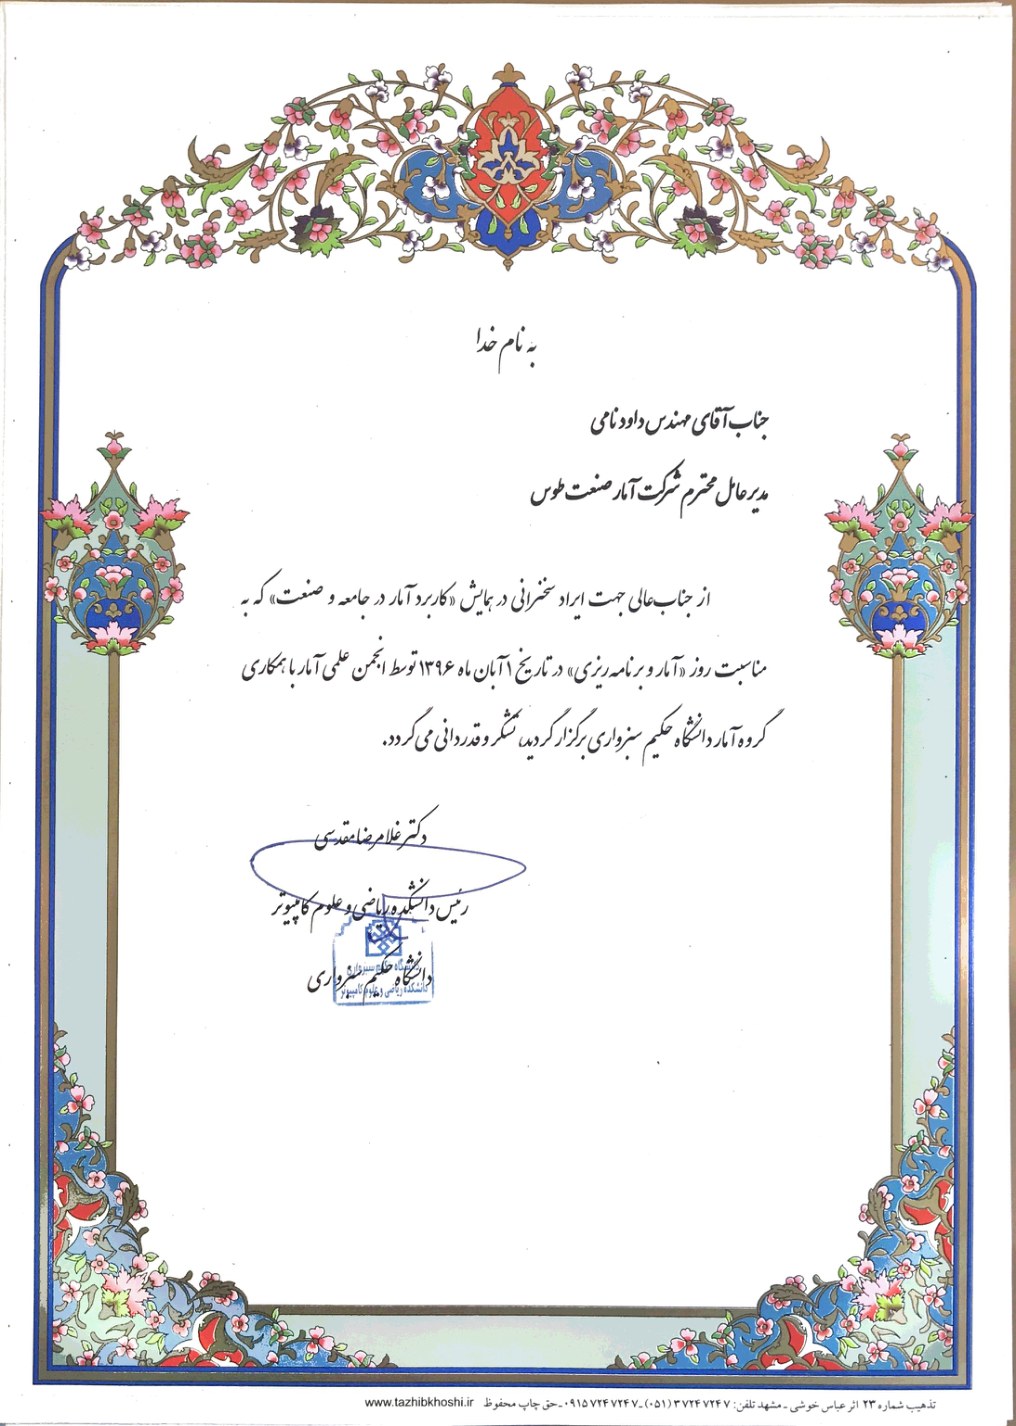 به نام خدا
جناب آقای مهندس داود نامی
مدیر عامل محترم شرکت آمار صنعت طوس
از جناب‌عالی جهت ایراد سخنرانی در همایش «کاربرد آمار در جامعه و صنعت» که به
مناسبت روز «آمار و برنامه‌ریزی» در تاریخ ۱ آبان ماه ۱۳۹۶ توسط انجمن علمی آمار با همکاری
گروه آمار دانشگاه حکیم سبزواری برگزار گردید، تشکر و قدردانی می‌گردد.
دکتر غلامرضا مقدسی
رئیس دانشکده ریاضی و علوم کامپیوتر
دانشگاه حکیم سبزواری
دانشگاه حکیم سبزواری
دانشکده ریاضی و علوم کامپیوتر
تذهیب شماره ۲۳ اثر عباس خوشی ـ مشهد تلفن: ۳۷۲۴۷۲۴۷ (۰۵۱) ـ ۰۹۱۵۷۲۴۷۲۴۷ ـ حق چاپ محفوظ www.tazhibkhoshi.ir